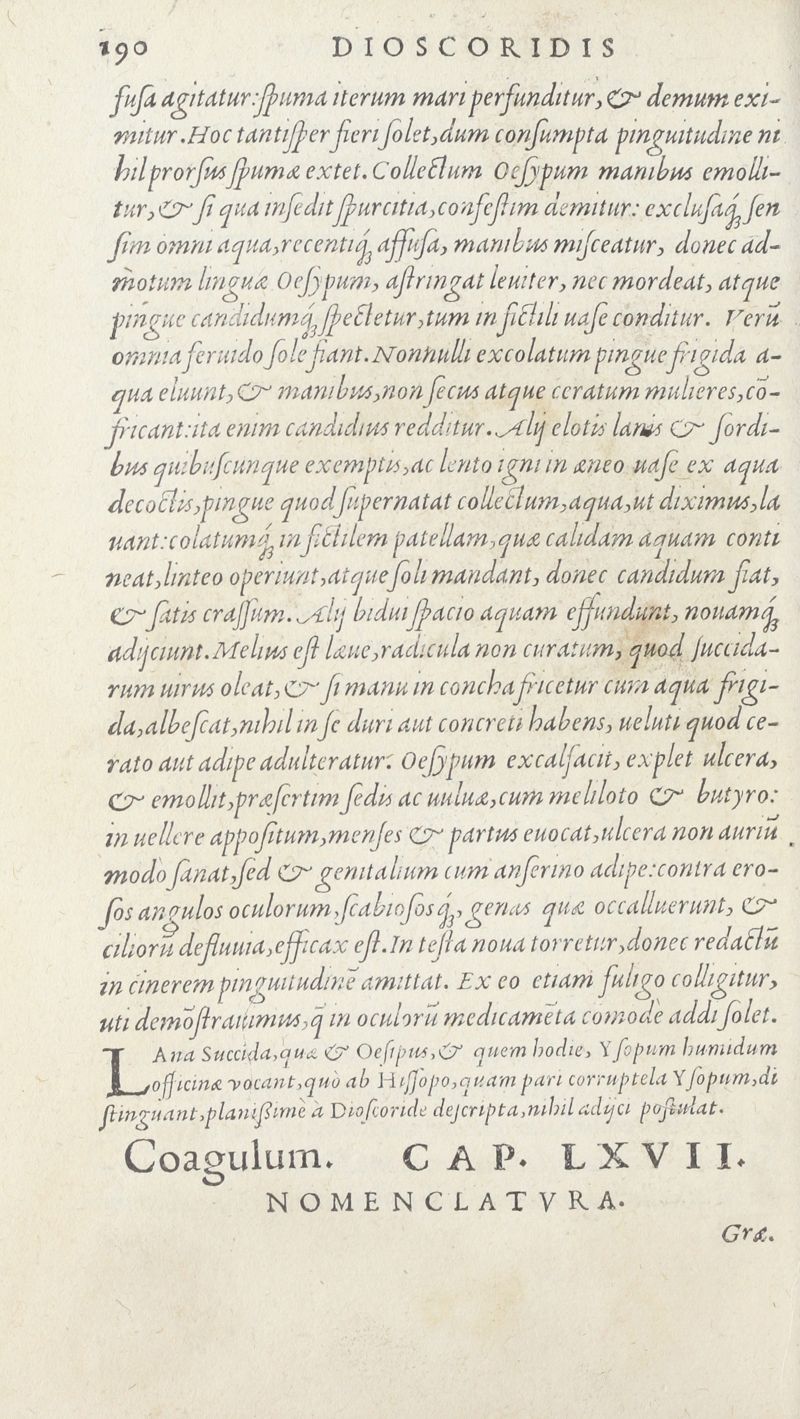 190 DIOSCORIDIS
fusa agitatur: spuma iterum mari perfunditur, & demum exi-
mitur. Hoc tantisper fieri solet, dum consumpta pinguitudine ni
hil prorsus spumæ extet. Collectum Oesypum manibus emolli-
tur, & si qua insedit spurcitia, confestim demitur: exclusaq́; sen
sim omni aqua, recentiq́; affusa, manibus misceatur, donec ad-
motum linguæ Oesypum, astringat leuiter, nec mordeat, atque
pingue candidumq́; spectetur, tum in fictili uase conditur. Verũ
omnia feruido sole fiant. Nonnulli excolatum pingue frigida a-
qua eluunt, & manibus, non secus atque ceratum mulieres, cõ-
fricant: ita enim candidius redditur. Alij elotis lanis & sordi-
bus quibuscunque exemptis, ac lento igni in æneo uase ex aqua
decoctis, pingue quod supernatat collectum, aqua, ut diximus, la
uant: colatumq́; in fictilem patellam, quæ calidam aquam conti
neat, linteo operiunt, atque soli mandant, donec candidum fiat,
& satis crassum. Alij bidui spacio aquam effundunt, nouamq́;
adijciunt. Melius est læue, radicula non curatum, quod succida-
rum uirus oleat, & si manu in concha fricetur cum aqua frigi-
da, albescat, nihil in se duri aut concreti habens, ueluti quod ce-
rato aut adipe adulteratur: Oesypum excalfacit, explet ulcera,
& emollit, præsertim sedis ac uuluæ, cum meliloto & butyro:
in uellere appositum, menses & partus euocat, ulcera non auriũ
modo sanat, sed & genitalium cum anserino adipe: contra ero-
sos angulos oculorum, scabiososq́;, genas quæ occalluerunt, &
ciliorũ defluuia, efficax est. In testa noua torretur, donec redactũ
in cinerem pinguitudinẽ amittat. Ex eo etiam fuligo colligitur,
uti demõstrauimus, q̃ in oculorũ medicamẽta cõmode addi solet.
LAna Succida, quæ & Oesipus, & quem hodie, Ysopum humidum
officinæ vocant, quò ab Hissopo, quam pari corruptela Ysopum, di
stinguant, planissimè à Dioscoride descripta, nihil adijci postulat.
Coagulum. CAP. LXVII.
NOMENCLATVRA.
Græ.